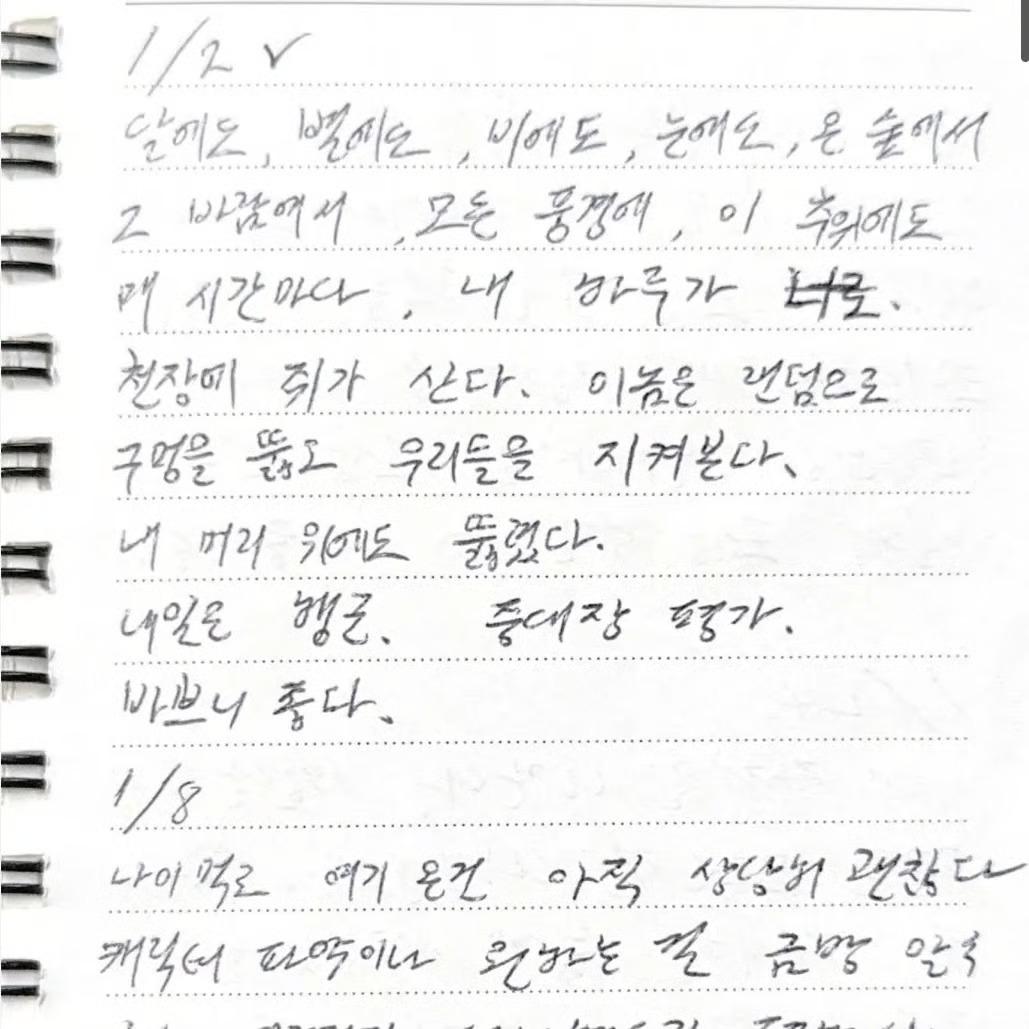 1/2 ✓
달에도, 별에도, 비에도, 눈에도, 온 숲에서
그 바람에서, 모든 풍경에, 이 추위에도
매 시간마다, 내 하루가 너로.
천장에 쥐가 산다. 이놈은 랜덤으로
구멍을 뚫고 우리들을 지켜본다.
내 머리 위에도 뚫렸다.
내일은 행군. 중대장 평가.
바쁘니 좋다.
1/8
나이 먹고 여기 온건 아직 상당히 괜찮다
캐릭터 파악이나 원하는 걸 금방 알